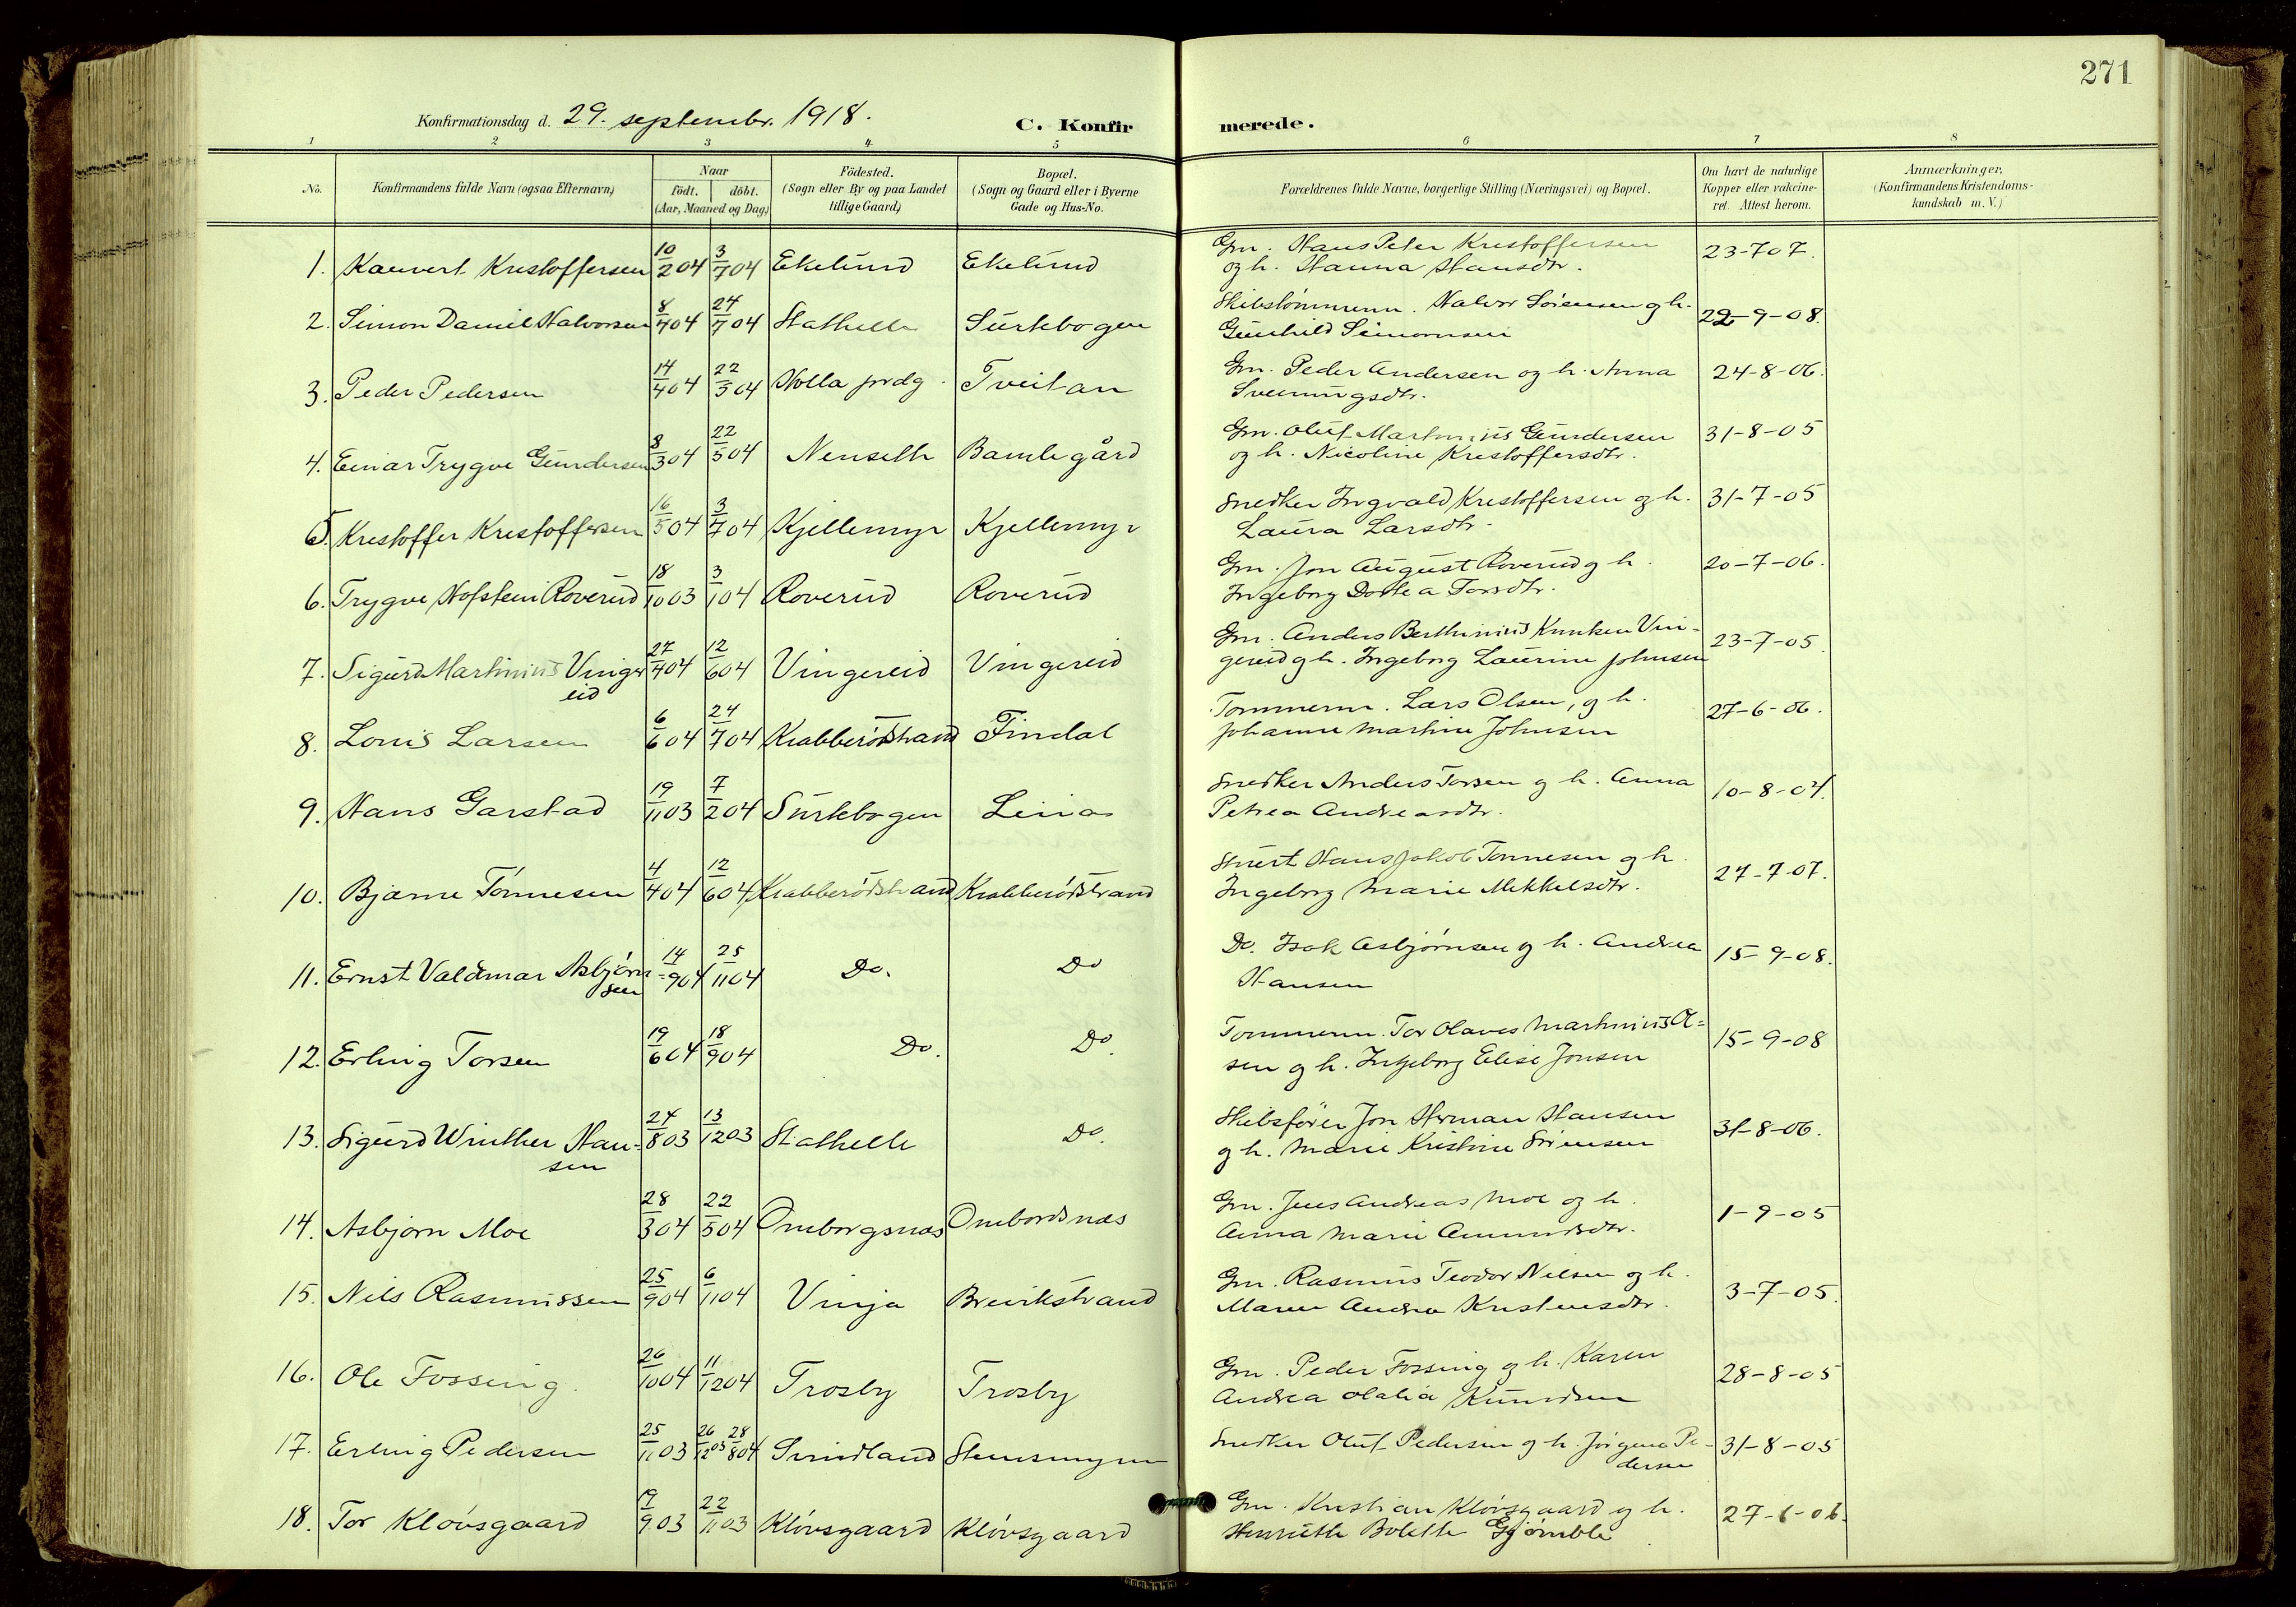 271
Konfirmationsdag d. 29. septembr. 1918.
C. Konfirmerede.
1 2 3 4 5 6 7 8
No.
Konfirmandens fulde Navn (ogsaa Efternavn)
Naar
födt. döbt.
(Aar, Maaned og Dag.)
Födested.
(Sogn eller By og paa Landet
tillige Gaard)
Bopæl.
(Sogn og Gaard eller i Byerne
Gade og Hus-No.
Forældrenes fulde Navne, borgerlige Stilling (Næringsvei) og Bopæl.
Om havt de naturlige
Kopper eller vakcine-
ret. Attest herom.
Anmærkninger.
(Konfirmandens Kristendoms-
kundskab m. V.)
1. Kristoffersen 10/2 04 3/7 04 Ekelund Ekelund
Gm. Hans Peter Kristoffersen
og h. Hanna Hansdtr. 23-7 07.
2. Simon Daniel Halvorsen 8/4 04 24/7 04 Stathelle Surtebogen
Skibstömmerm. Halvor Sörensen og h.
Gunhild Simonsen 22-9-08.
3. Peder Pedersen 14/4 04 22/5 04 Holla prdg. Tveitan
Gm. Peder Andersen og h. Anna
Sveinungsdtr. 24-8-06.
4. Einar Trygve Gundersen 8/3 04 22/5 04 Nenseth Bamlegård
Gm. Oluf Martinius Gundersen
og h. Nicoline Kristoffersdtr. 31-8-05
5. Kristoffer Kristoffersen 16/5 04 3/7 04 Kjellemyr Kjellemyr
Snedker Ingvald Kristoffersen og h.
Laura Larsdtr. 31-7-05
6. Trygve Hofstein Roverud 18/10 03 3/1 04 Roverud Roverud
Gm. Jon August Roverud og h.
Ingeborg Dortea Torsdtr. 20-7-06.
7. Sigurd Martinius Vinger
eid 27/4 04 12/6 04 Vingereid Vingereid
Gm. Anders Berthinius Knutsen Vin-
gereid og h. Ingeborg Laurine Johnsen 23-7-05.
8. Louis Larsen 6/6 04 24/7 04 Krabberødstrand Findal
Tömmerm. Lars Olsen, og h.
Johanne Martine Johnsen 27-6-06.
9. Hans Garstad 19/11 03 7/2 04 Surtebogen
Snedker Anders Torsen og h. Anna
Petrea Andreasdtr. 10-8-04.
10. Bjarne Tönnesen 4/4 04 12/6 04 Krabberødstrand Krabberødstrand
Hans Jakob Tönnesen og h.
Ingeborg Marie Mikkelsdtr. 27-7-07.
11. Ernst Valdemar Asbjörn-
sen 14/9 04 25/11 04 Do. Do
Do. Isak Asbjørnsen og h. Andrea
Hansen 15-9-08.
12. Erling Torsen 19/6 04 18/9 04 Do. Do.
Tömmerm. Tor Olaves Martinius A=
sen og h. Ingeborg Elise Jonsen 15-9-08
13. Sigurd Winther Han-
sen 24/8 03 13/12 03 Stathelle Do.
Skibsförer Jon Herman Hansen
og h. Marie Kristine Sörensen 31-8-06.
14. Asbjørn Moe 28/3 04 22/5 04 Omborgsnæs Ombordsnæs
Gm. Jens Andreas Moe og h.
Anna Marie Amundsdtr. 1-9-05
15. Nils Rasmussen 25/9 04 6/11 04 Vinja Breivikstrand
Gm. Rasmus Teodor Nilsen og h.
Maren Andrea Kristensdtr. 3-7-05.
16. Ole Fossing 26/10 04 11/12 04 Trosby Trosby
Gm. Peder Fossing og h. Karen
Andrea Olalia Knudsen 28-8-05
17. Erling Pedersen 25/11 03 26/12 03 28/8 04 Svindland Stensmyren
Snedker Oluf Pedersen og h. Jörgine Pe-
dersen 31-8-05
18. Tor Klövsgaard 19/9 03 22/11 03 Klövsgaard Klövsgaard
Gm. Kristian Klövsgaard og h.
Henriette Bolette Gjømble 27-6-06.